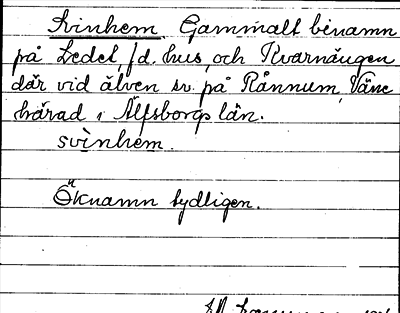 Svinhem. Gammalt binamn
på Ledet, f.d. hus, och Kvarnängen
där vid älven sv. på Rånnum, Väne
härad i Älfsborgs län.
svìnhem.
Öknamn tydligen.